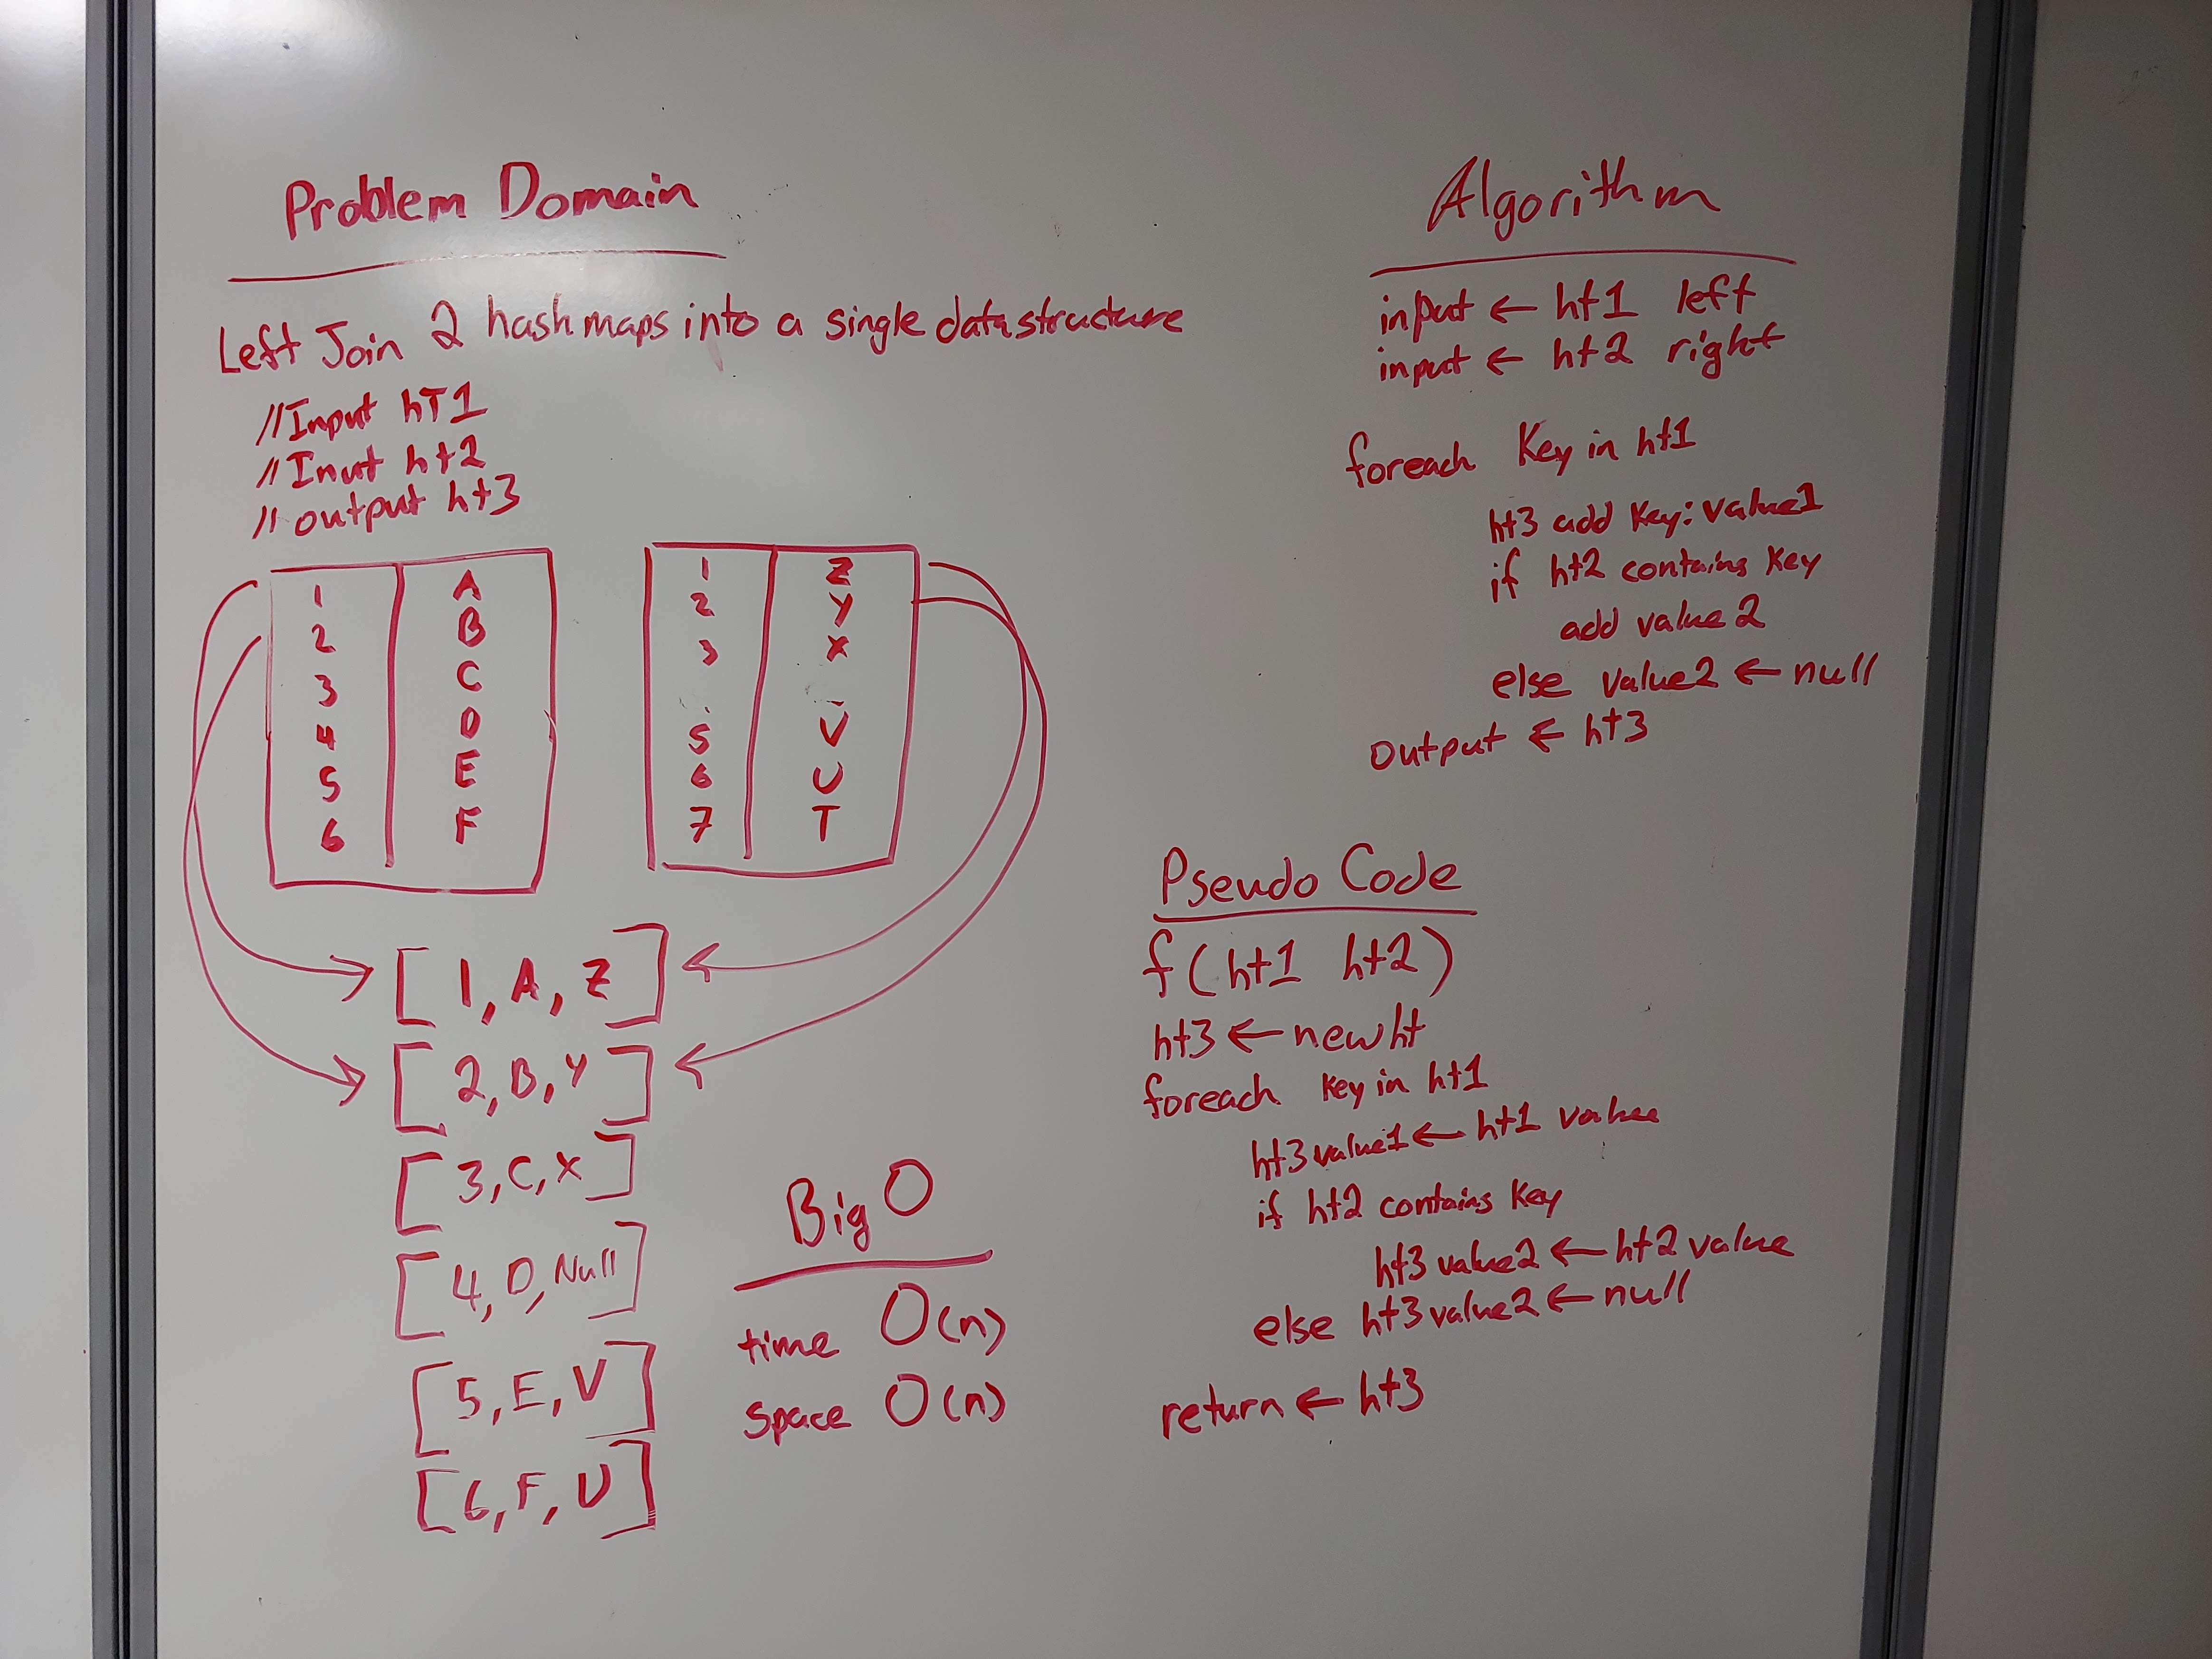 Problem Domain
Left Join 2 hashmaps into a single datastructure
//Input hT1
//Inut ht2
//output ht3
1 A
2 B
3 C
4 D
5 E
6 F
1 Z
2 Y
3 X
5 V
6 U
7 T
[1, A, Z]
[2, B, Y]
[3, C, X]
[4, D, Null]
[5, E, V]
[6, F, U]
Big O
time O(n)
space O(n)
Algorithm
input ← ht1 left
input ← ht2 right
foreach Key in ht1
ht3 add Key: value1
if ht2 contains Key
add value2
else value2 ← null
Output ← ht3
Pseudo Code
f(ht1 ht2)
ht3 ← new ht
foreach Key in ht1
ht3 value1 ← ht1 value
if ht2 contains Key
ht3 value2 ← ht2 value
else ht3 value2 ← null
return ← ht3